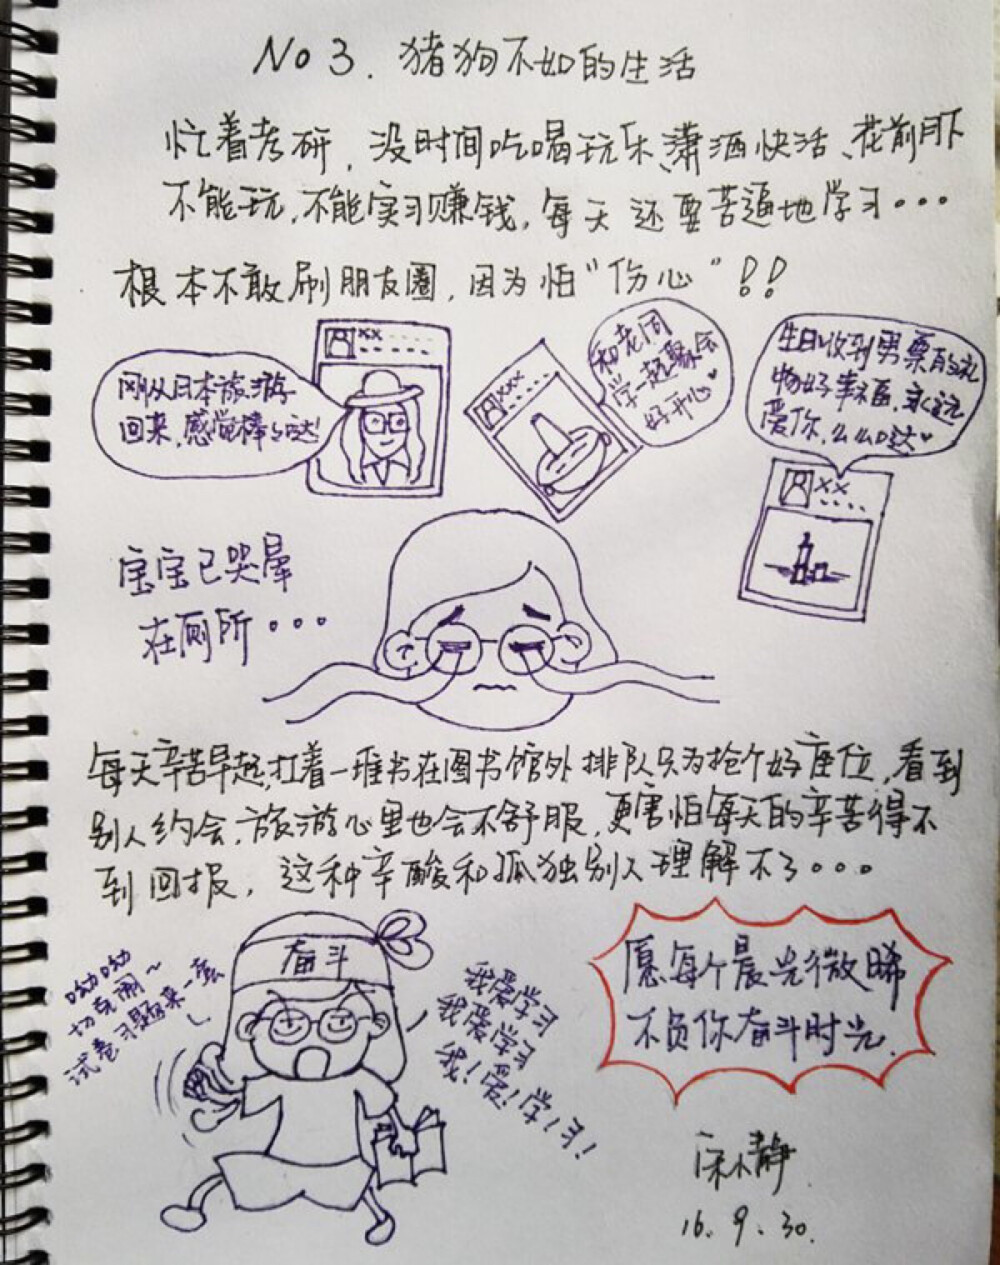 No 3. 猪狗不如的生活
忙着考研，没时间吃喝玩乐、潇洒快活、花前月下
不能玩，不能实习赚钱，每天还要苦逼地学习...
根本不敢刷朋友圈，因为怕"伤心"！！
刚从日本旅游
回来，感觉棒么哒！
××
××××
和老同
学一起聚会
好开心
生日收到男票的礼
物好幸福，永远
爱你，么么哒
××
宝宝已哭晕
在厕所...
每天辛苦早起，扛着一堆书在图书馆外排队只为抢个好座位，看到
别人约会，旅游心里也会不舒服，更害怕每天的辛苦得不
到回报，这种辛酸和孤独别人理解不了...
奋斗
动动
切克闹~
试卷习题来一套
我爱学习
我爱学习
我！爱！学！习！
愿每个晨光微晞
不负你奋斗时光.
16.9.30.